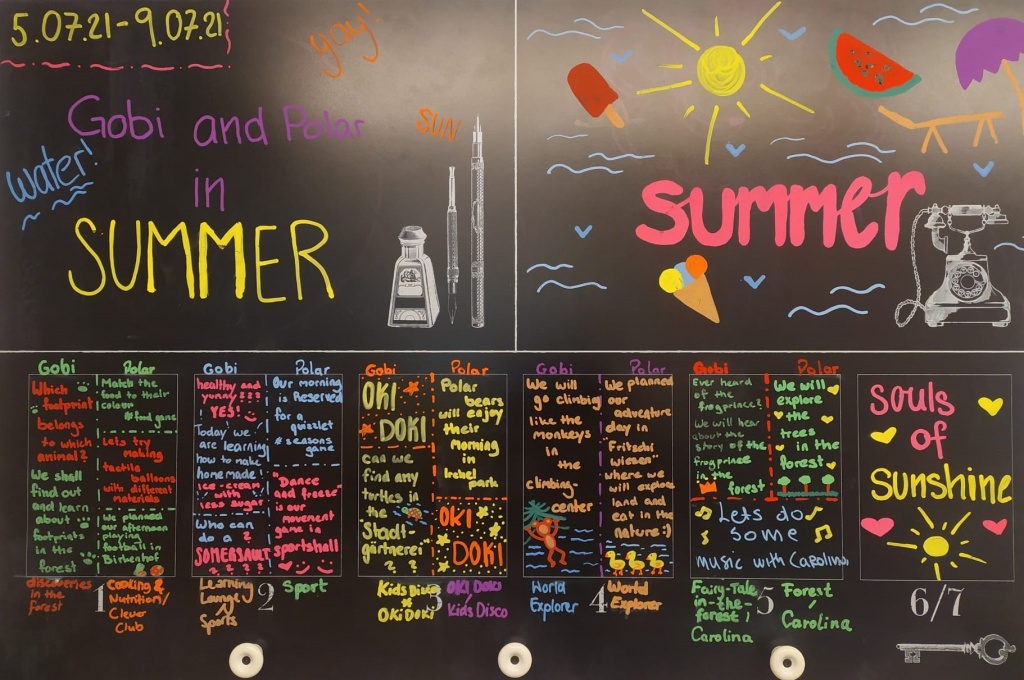 5.07.21-9.07.21
yay!
Gobi and Polar
in
SUMMER
water!
SUN
summer
Gobi
Which
footprint
belongs
to which
animal?
We shall
find out
and learn
about
footprints
in the
forest
discoveries
in the
forest
Polar
Match the
food to their
colour
#food game
Lets try
making
tactile
balloons
with different
materials
We planned
our afternoon
playing
football in
Birkenhof
Cooking &
Nutrition/
Clever
Club
1
Gobi
healthy and
yummy???
YES!
Today we
are learning
how to make
homemade
ice cream
with
less sugar
Who can
do a
SOMERSAULT
? ? ? ?
Learning
Lounge
Sports
Polar
Our morning
is Reserved
for a
quizslet
#seasons
game
"Dance
and freeze"
is our
movement
game in
sportshall
Sport
2
Gobi
OKI
DOKI
can we
find any
turtles in
the
Stadt-
gärtnerei
?
Kids Disco
OKi DOKi
Polar
Polar
bears
will enjoy
their
morning
in
Irchel
park
OKI
DOKI
OKI DOKI
Kids Disco
3
Gobi
We will
go climbing
like the
monkeys
in
the
climbing
center
World
Explorer
Polar
We planned
our
adventure
day in
Fritschi
wiesen
where we
will explore
land and
eat in the
nature:)
World
Explorer
4
Gobi
Ever heard
of the
frogprince?
We will hear
about the
story of the
frogprince
in the
forest
Polar
We will
explore
the
trees
in the
forest
Lets do
some
music with Carolina
Fairy-Tale
in-the-
forest /
Carolina
5
Forest
/
Carolina
souls
of
sunshine
6/7